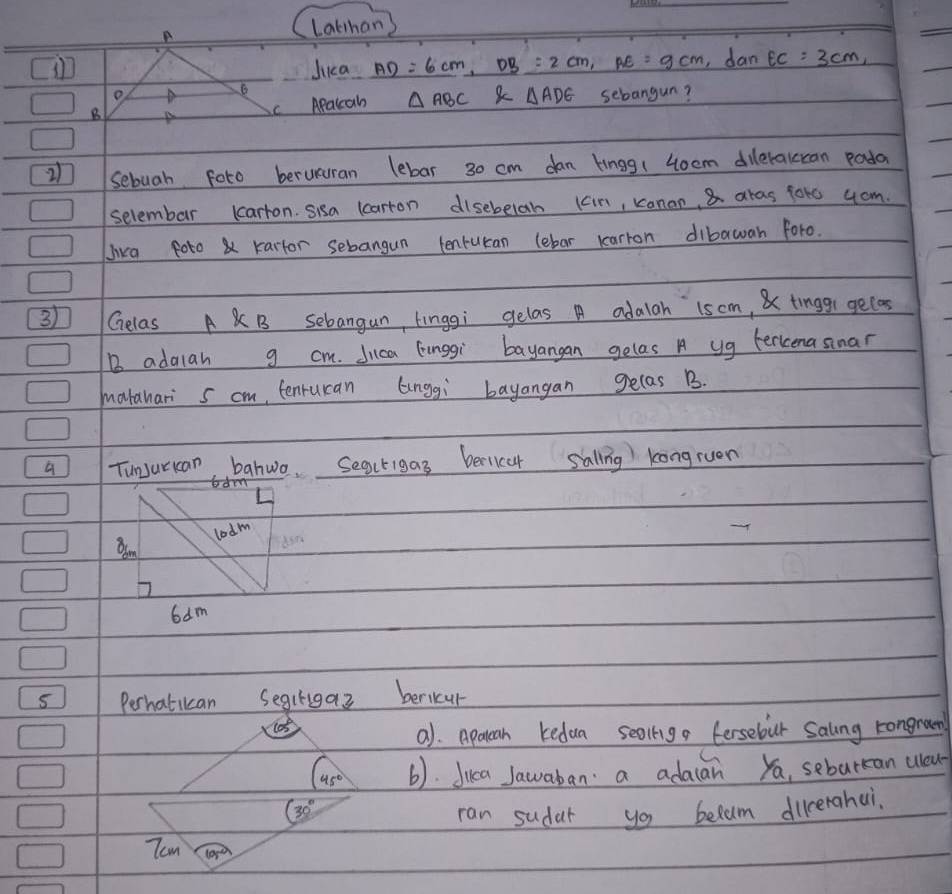 (Latihan)
1) Jika AD = 6 cm, DB = 2 cm, AE = 9 cm, dan EC = 3 cm,
Apakah △ ABC & △ADE sebangun?
A
D
E
B
C
2) Sebuah foto berukuran lebar 30 cm dan tinggi 40cm diletakkan pada
selembar karton. Sisa karton disebelah kiri, kanan, & atas foto 4cm.
Jika foto & karton sebangun tentukan lebar karton dibawah foto.
3) Gelas A & B sebangun, tinggi gelas A adalah 15 cm, & tinggi gelas
B adalah 9 cm. Jika tinggi bayangan gelas A yg terkena sinar
matahari 5 cm, tentukan tinggi bayangan gelas B.
4 Tunjukkan bahwa Segitiga2 berikut saling kongruen
6dm
10dm
8dm
6dm
5 Perhatikan Segitiga2 berikut
a). Apakah kedua segitiga tersebut Saling kongruen
b). Jika Jawaban a adalah Ya, sebutkan uku-
ran sudut yg belum diketahui.
105°
45°
30°
7cm